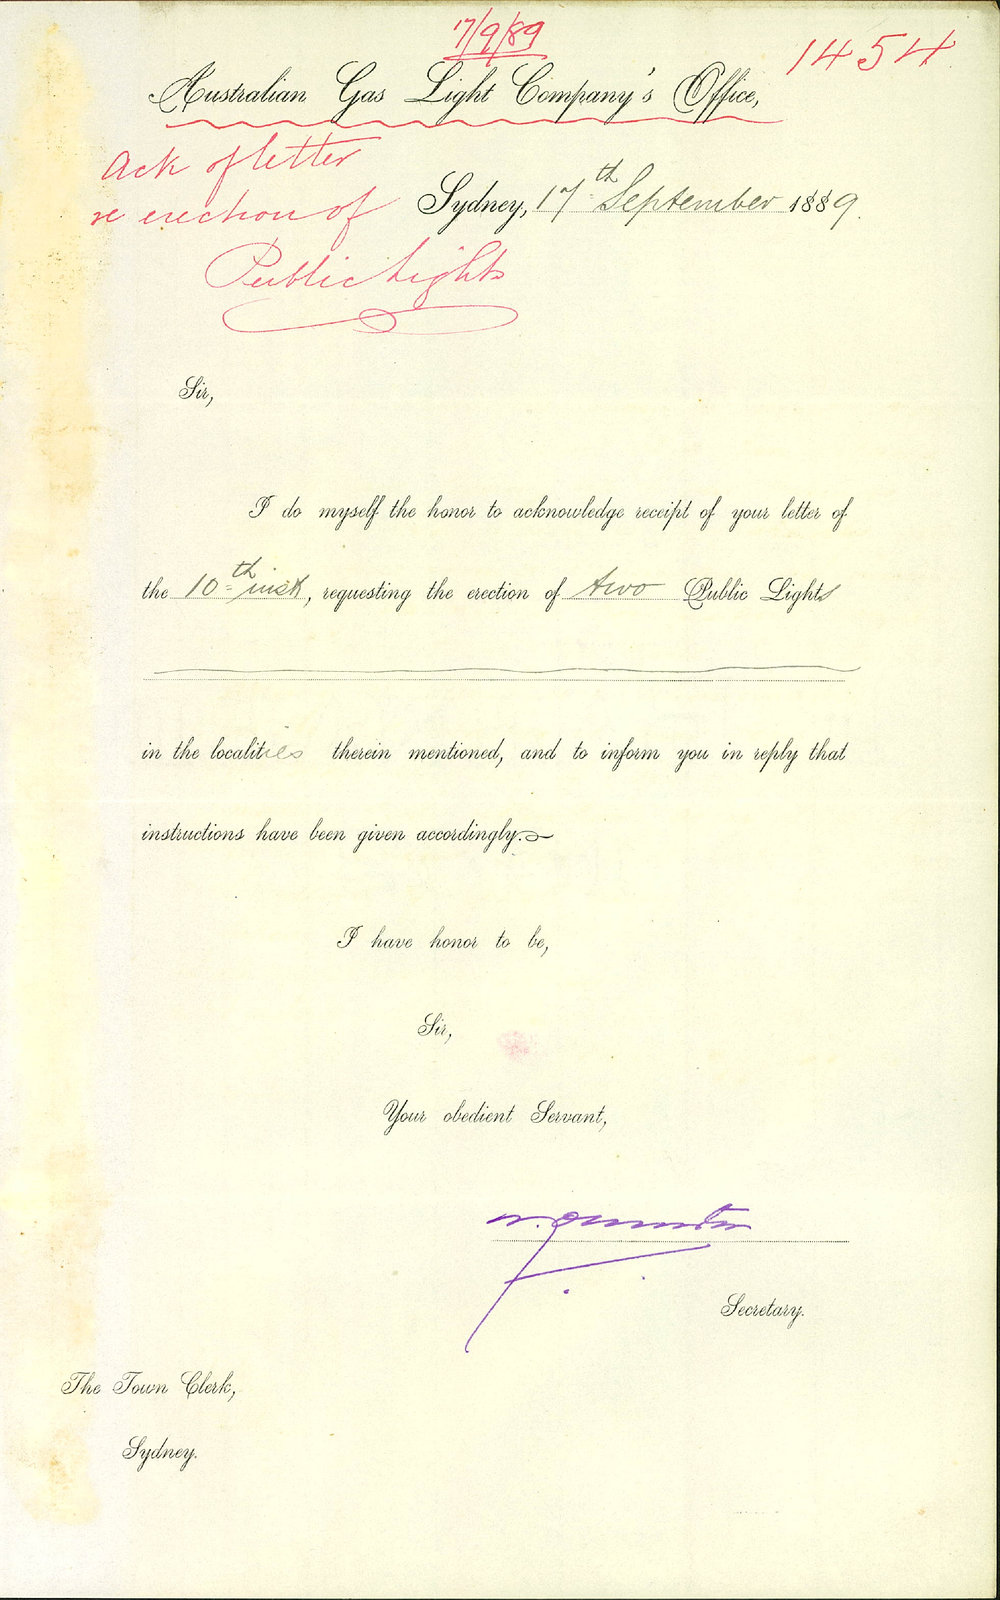 17/9/89
1454
Australian Gas Light Company's Office,
Ack of letter
re erection of
Public Lights
Sydney, 17th September 1889.
Sir,
I do myself the honor to acknowledge receipt of your letter of
the 10th inst, requesting the erection of two Public Lights
in the localities therein mentioned, and to inform you in reply that
instructions have been given accordingly.
I have honor to be,
Sir,
Your obedient Servant,
Secretary.
The Town Clerk,
Sydney.